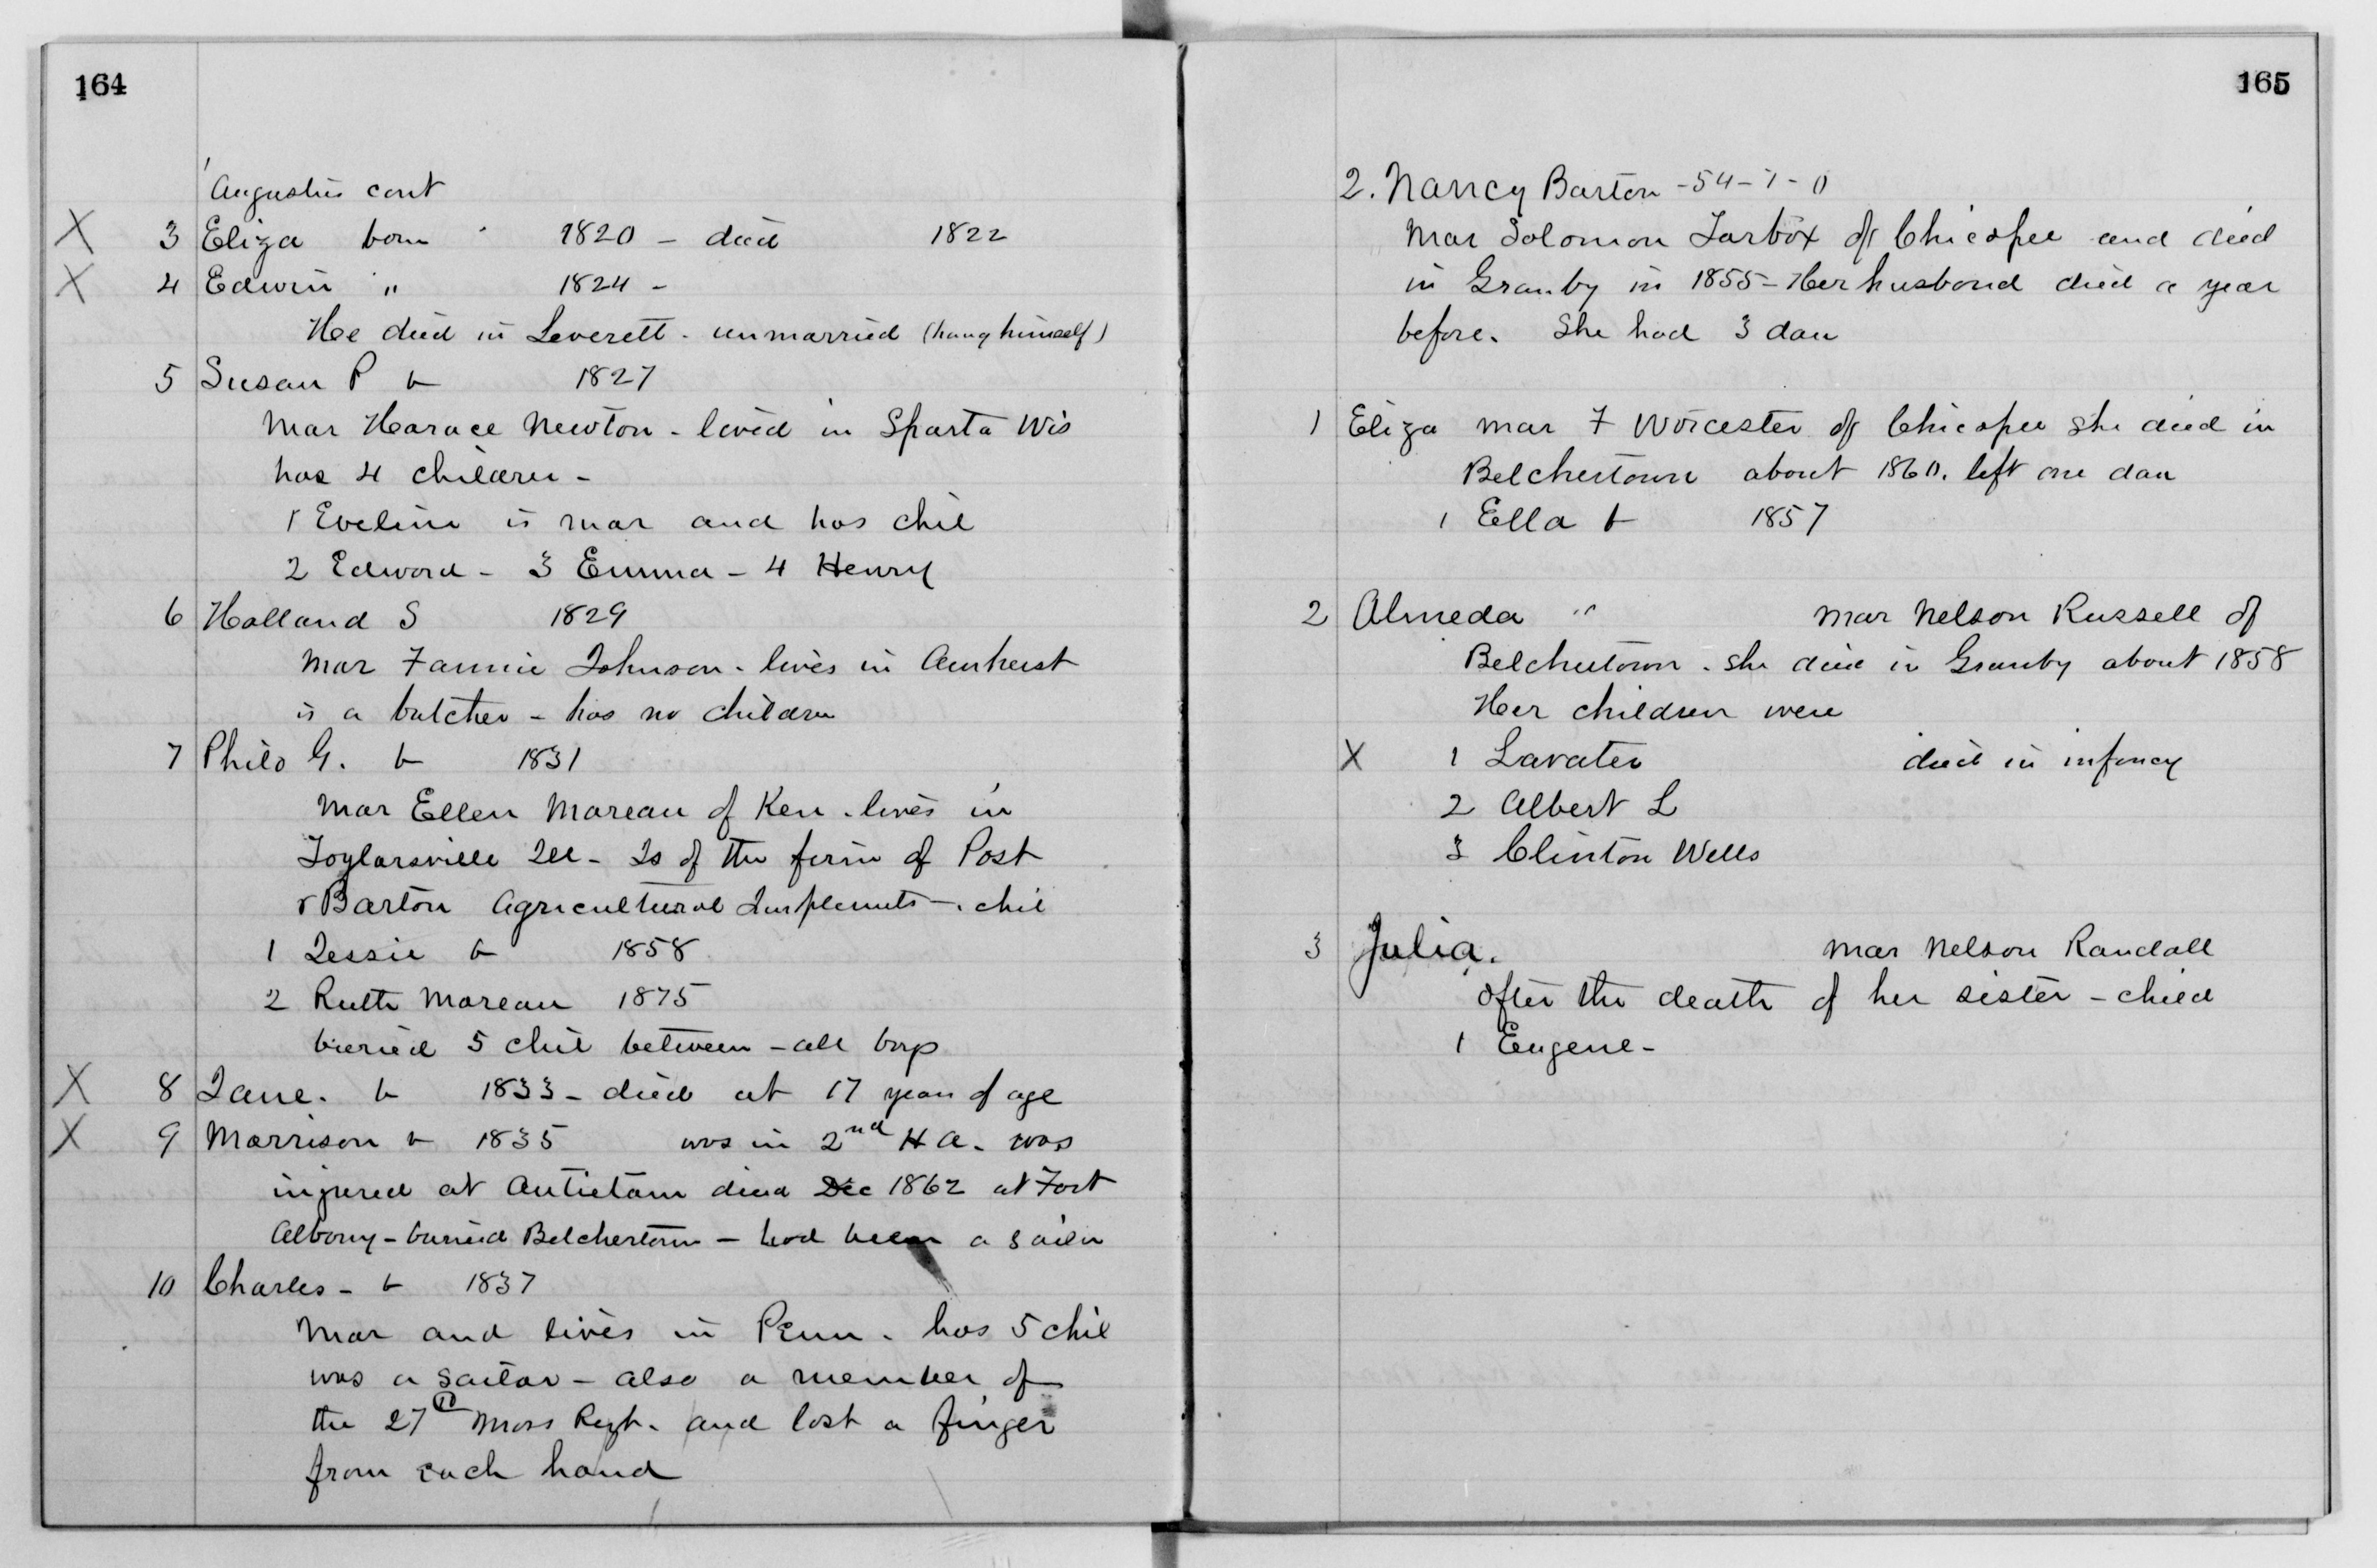 164
Augustus cont
X 3 Eliza born 1820 - died 1822
X 4 Edwin " 1824 -
He died in Leverett - unmarried (hung himself)
5 Susan P b 1827
Mar Horace Newton - lived in Sparta Wis
has 4 children -
1 Eveline is mar and has chil
2 Edward - 3 Emma - 4 Henry
6 Holland S 1829
Mar Fannie Johnson - lives in Amherst
is a butcher - has no children
7 Philo G. b 1831
Mar Ellen Moreau of Ken - lives in
Taylorsville Ill - Is of the firm of Post
& Barton Agricultural Implements - chil
1 Jessie b 1858
2 Ruth Moreau 1875
buried 5 chil between - all boys
X 8 Jane. b 1833 - died at 17 years of age
X 9 Morrison b 1835 was in 2nd H A. was
injured at Antietam died Dec 1862 at Fort
Albany - buried Belchertown - had been a sailor
10 Charles - b 1837
Mar and lives in Penn - has 5 chil
was a sailor - also a member of
the 27th Mass Regt. and lost a finger
from each hand
165
2. Nancy Barton - 54 - 7 - 0
Mar Solomon Tarbox of Chicopee and died
in Granby in 1855 - Her husband died a year
before. She had 3 dau
1 Eliza mar F Worcester of Chicopee she died in
Belchertown about 1860. left one dau
1 Ella b 1857
2 Almeda " mar Nelson Russell of
Belchertown - she died in Granby about 1858
Her children were
X 1 Lavater died in infancy
2 Albert L
3 Clinton Wells
3 Julia. mar Nelson Randall
after the death of her sister - child
1 Eugene -